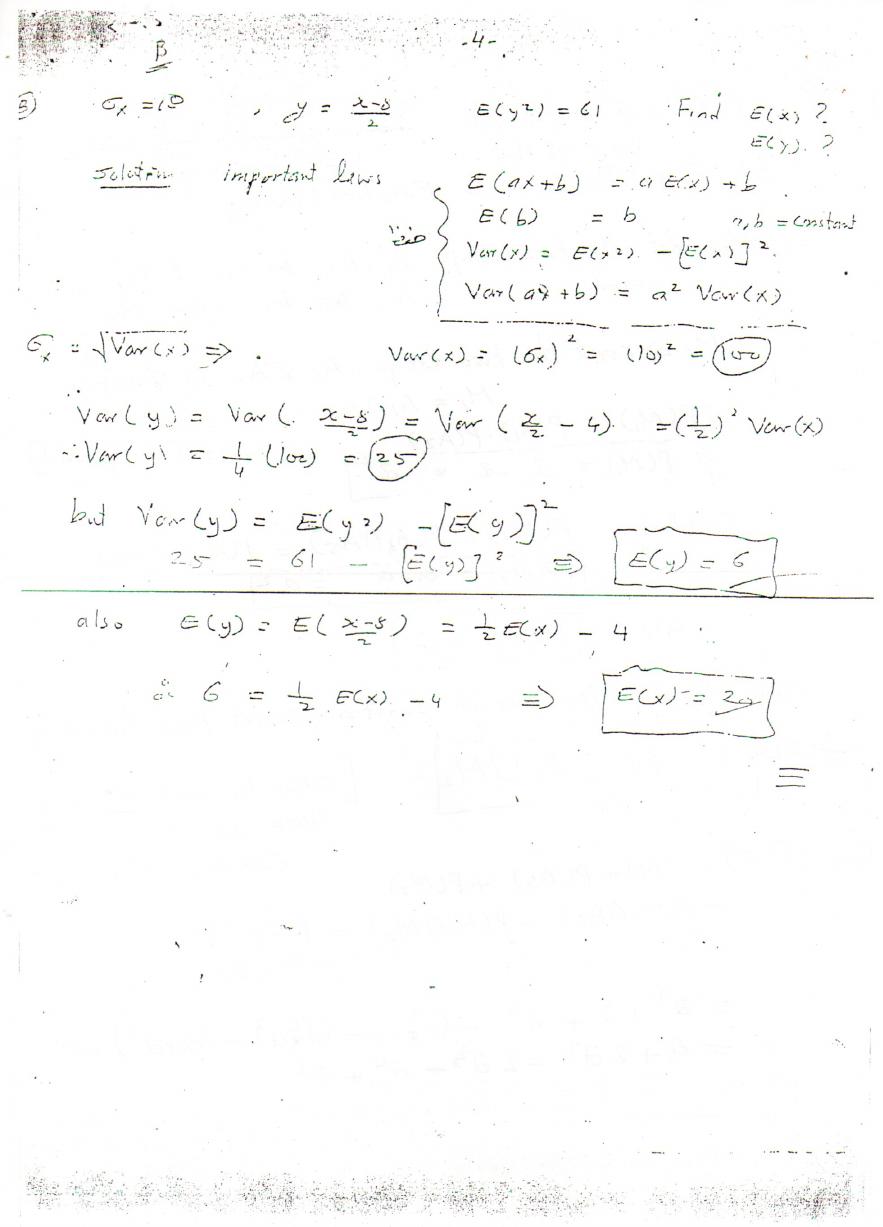 -4-
B
B) σx = 10 , y = (x-8)/2 E(y²) = 61 Find E(x) ?
E(y) ?
Solution important laws E(ax+b) = a E(x) + b
E(b) = b a,b = constant
Var(x) = E(x²) - [E(x)]².
Var(ax+b) = a² Var(x)
σx = √Var(x) ⇒ . Var(x) = (σx)² = (10)² = 100
∴ Var(y) = Var( (x-8)/2 ) = Var( x/2 - 4). = (1/2)² Var(x)
∴ Var(y) = 1/4 (100) = 25
but Var(y) = E(y²) - [E(y)]²
25 = 61 - [E(y)]² ⇒ E(y) = 6
also E(y) = E( (x-8)/2 ) = 1/2 E(x) - 4
∴ 6 = 1/2 E(x) - 4 ⇒ E(x) = 20